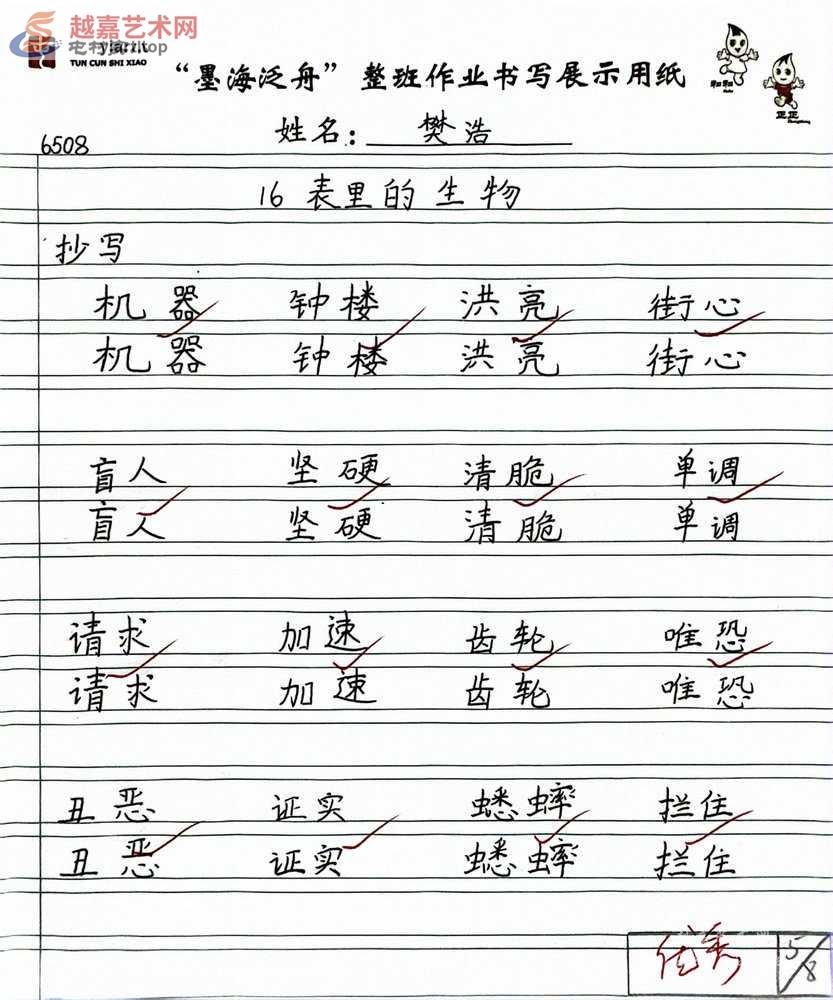 越嘉艺术网
yjart.top
TUN CUN SHI XIAO
“墨海泛舟”整班作业书写展示用纸
和和
正正
姓名：樊浩
6508
16 表里的生物
抄写
机器 钟楼 洪亮 街心
机器 钟楼 洪亮 街心
盲人 坚硬 清脆 单调
盲人 坚硬 清脆 单调
请求 加速 齿轮 唯恐
请求 加速 齿轮 唯恐
丑恶 证实 蟋蟀 拦住
丑恶 证实 蟋蟀 拦住
优秀 5/8